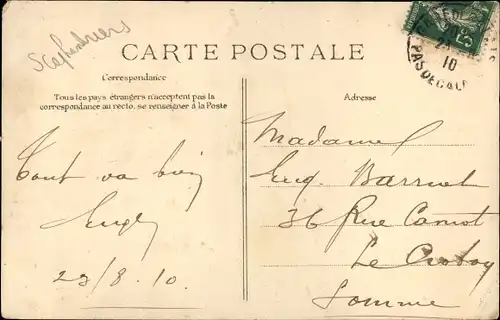 Scaphandriers
CARTE POSTALE
Correspondance
Tous les pays étrangers n'acceptent pas la
correspondance au recto, se renseigner à la Poste
Tout va bien
23/8.10.
PAS DE CALAIS
10
5
Adresse
Madame
Eug. Barruet
36 Rue Carnot
Le Crotoy
Somme